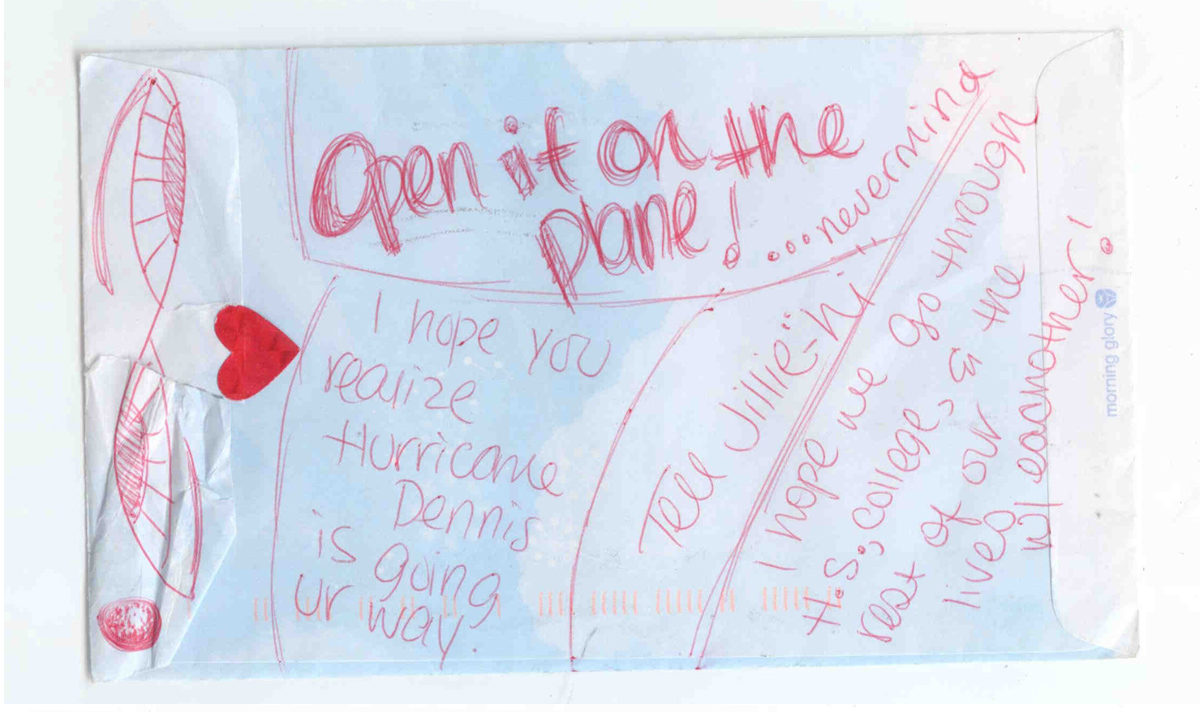 Open it on the
plane! ....nevermind
I hope you
realize
Hurricane
Dennis
is going
ur way.
Tell Jillie-hi
I hope we go through
H.S., college, & the
rest of our & the
lives
w/ eachother!
morning glory